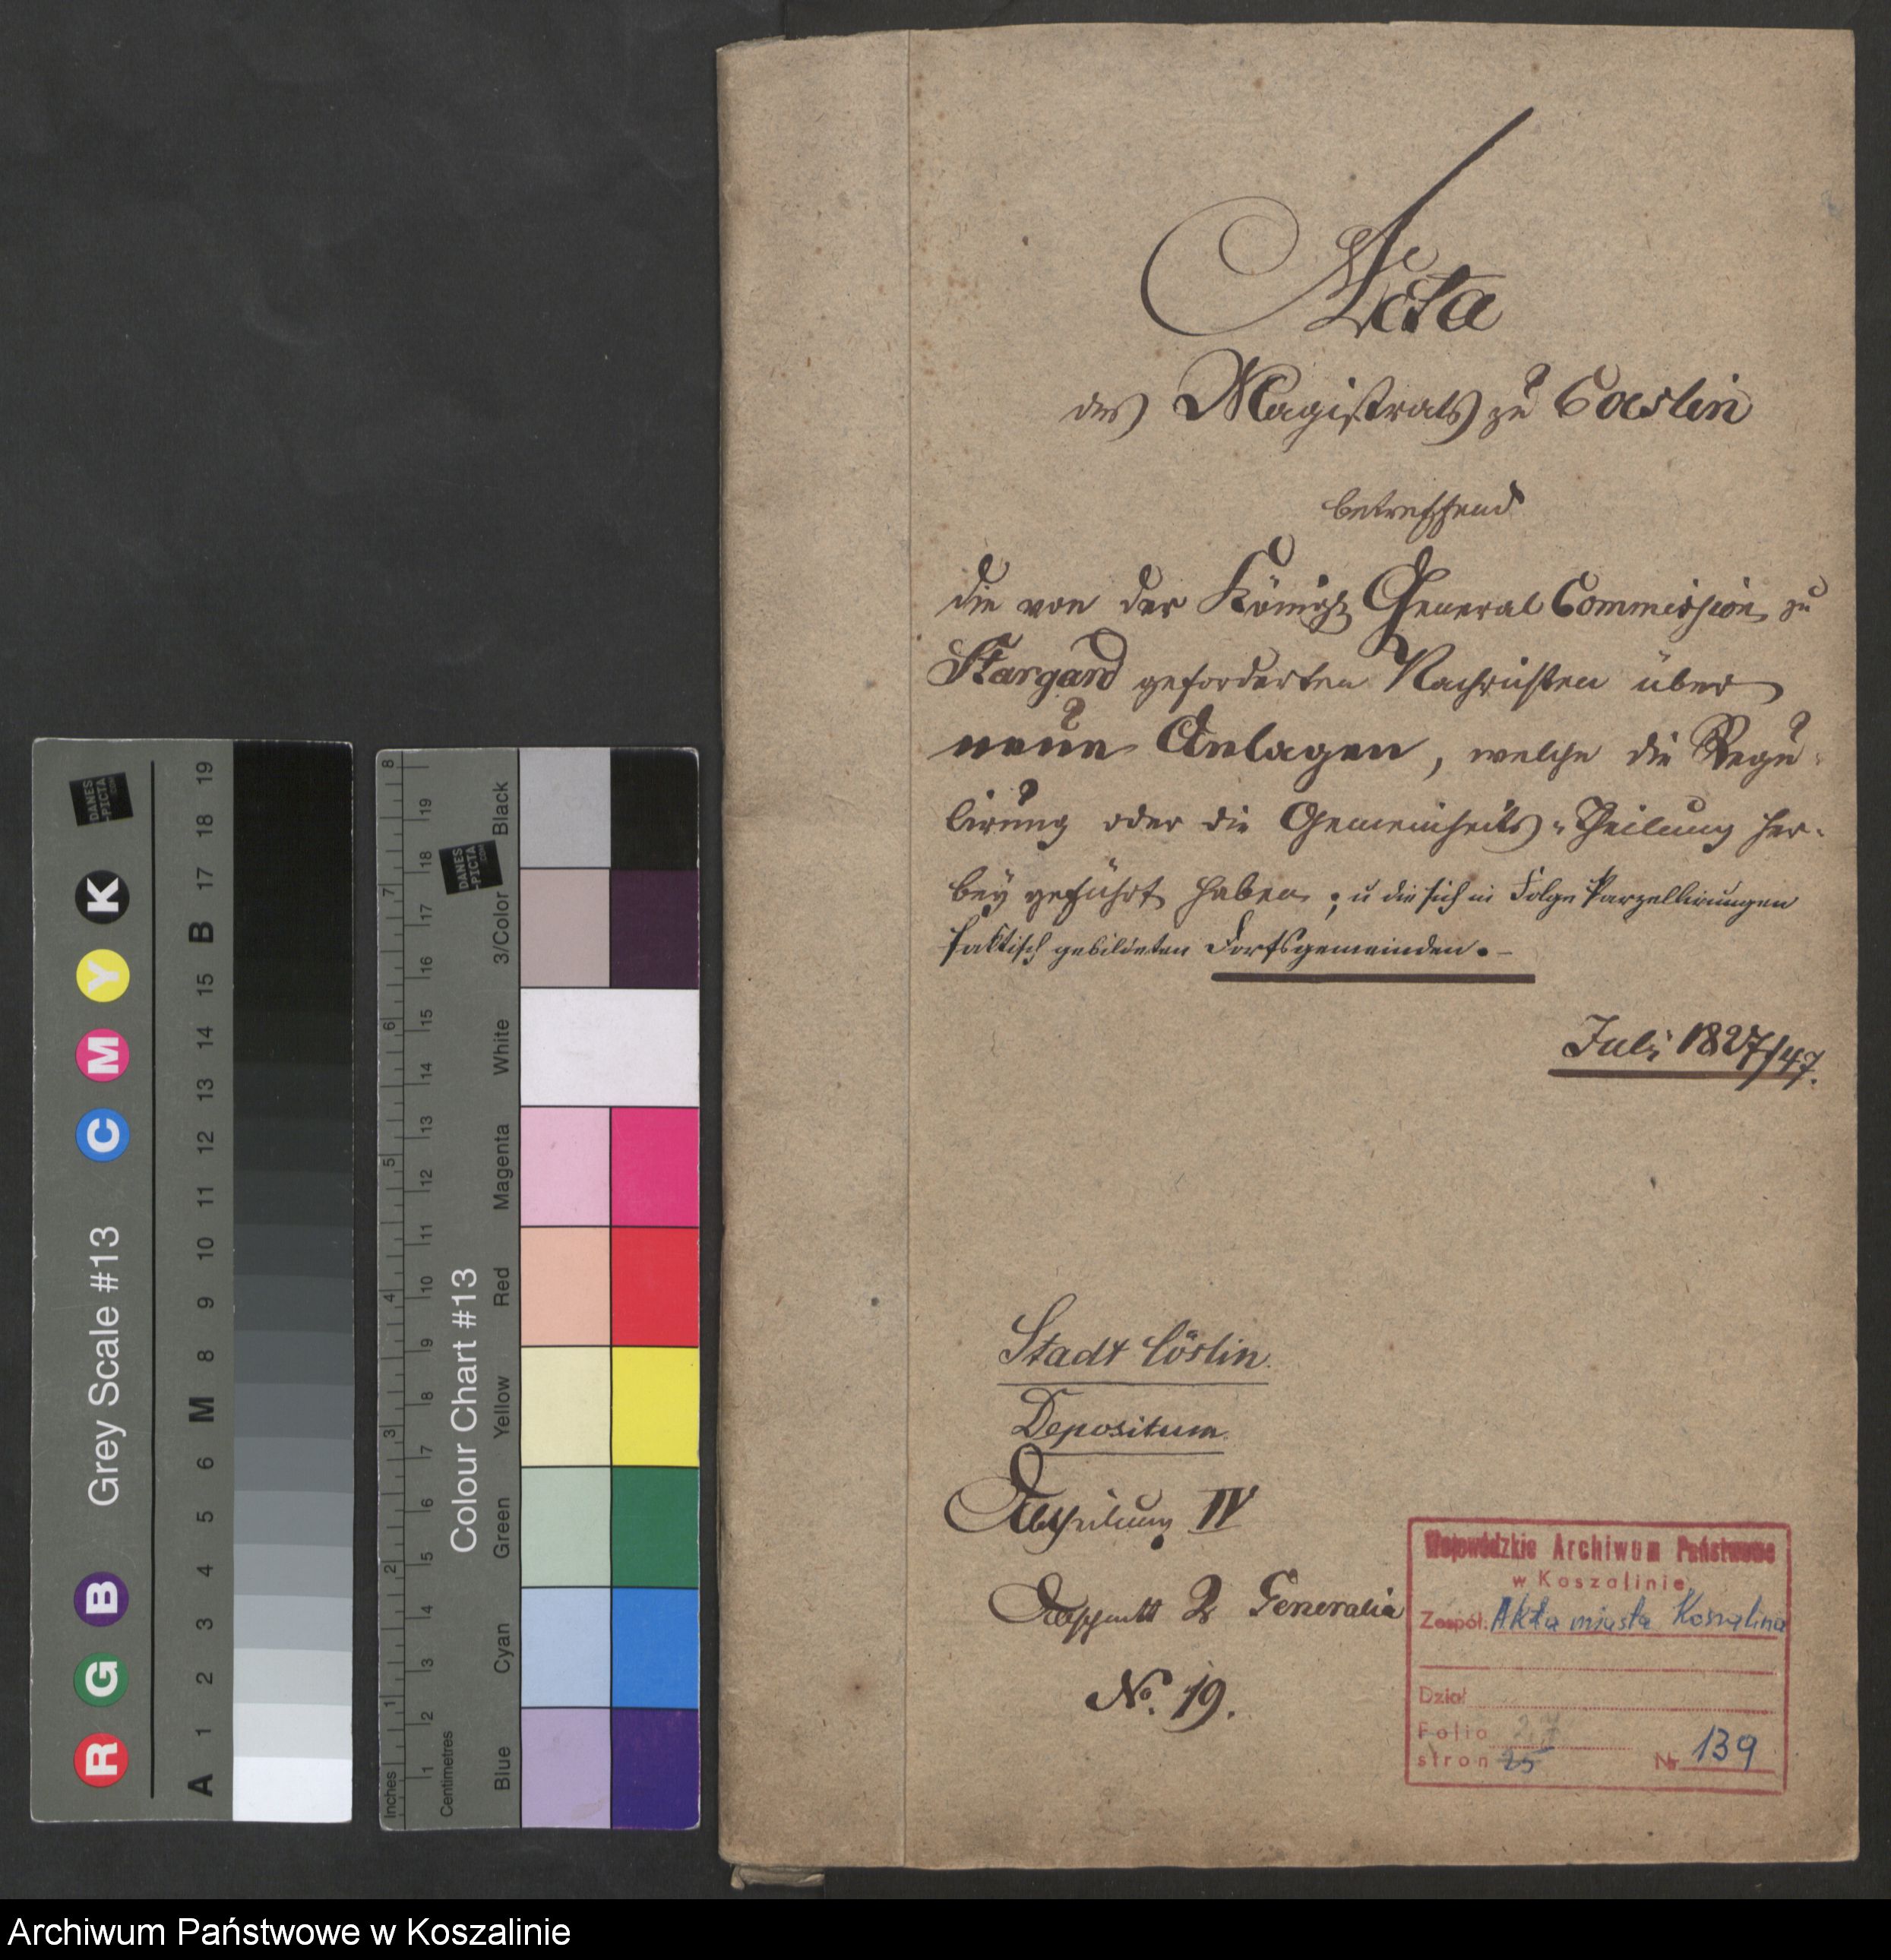 Acta
des Magistrats zu Coeslin
betreffend
die von der Königl General Commission zu
Stargard geforderten Nachrichten über
neue Anlagen, welche die Regu-
lirung oder die Gemeinheits-Theilung her-
bey geführt haben; u die sich in Folge Parzellirungen
faktisch gebildeten Dorfsgemeinden.-
Juli 1827/47.
Stadt Cöslin.
Depositum.
Abtheilung IV
Abschnitt 2 Generalia
No. 19.
Wojewódzkie Archiwum Państwowe
w Koszalinie
Zespół: Akta miasta Koszalina
Dział
Folio 27
stron 25 Nr 139
Grey Scale #13
R G B C M Y K
A 1 2 3 4 5 6 M 8 9 10 11 12 13 14 15 B 17 18 19
DANES
-PICTA
.COM
Colour Chart #13
Blue Cyan Green Yellow Red Magenta White 3/Color Black
Inches 1 2 3 4 5 6 7 8
Centimetres 1 2 3 4 5 6 7 8 9 10 11 12 13 14 15 16 17 18 19
DANES
-PICTA
.COM
Archiwum Państwowe w Koszalinie